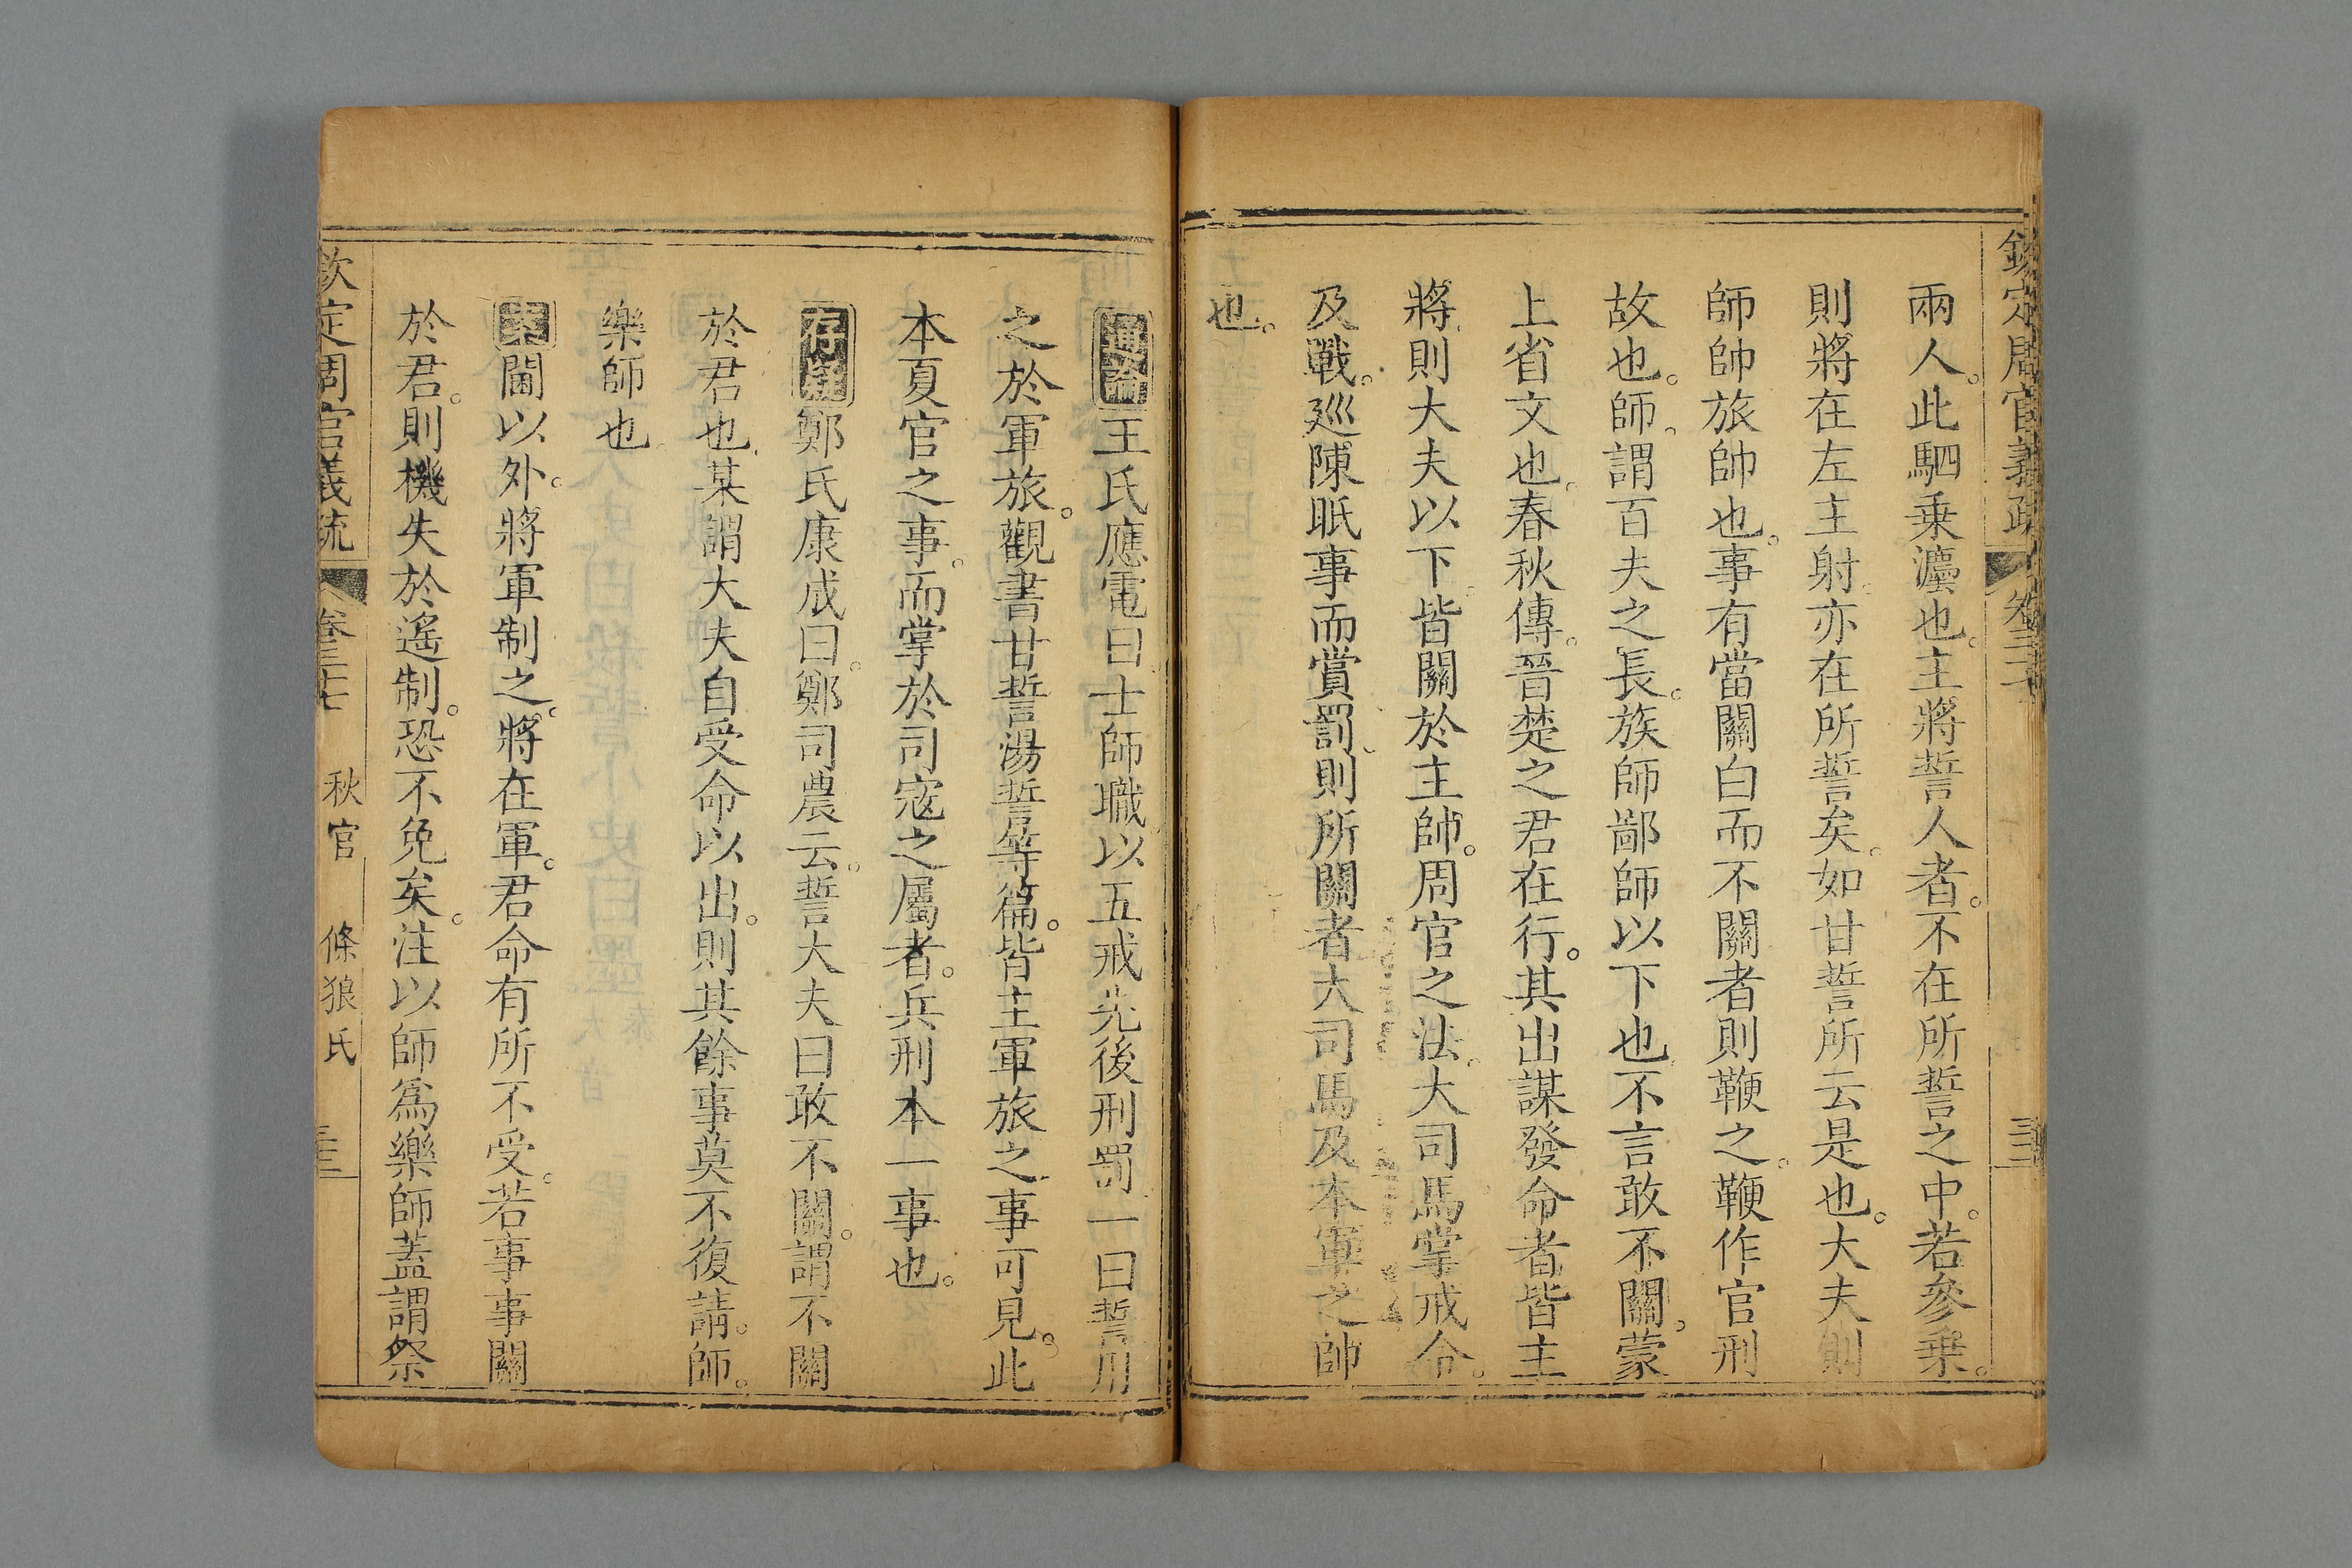 欽定周官義疏 卷三十
兩人。此駟乗灋也。主將誓人者。不在所誓之中。若參乗。
則將在左主射。亦在所誓矣。如甘誓所云是也。大夫則
師帥旅帥也。事有當關白而不關者則鞭之。鞭作官刑
故也。師。謂百夫之長。族師鄙師以下也。不言敢不關。蒙
上省文也。春秋傳。晉楚之君在行。其出謀發命者皆主
將。則大夫以下。皆關於主帥。周官之法。大司馬掌戒令。
及戰。巡陳眂事而賞罰。則所關者大司馬及本軍之帥
也。
通論王氏應電曰士師職以五戒先後刑罰一曰誓用
之於軍旅。觀書甘誓湯誓等篇。皆主軍旅之事可見。此
本夏官之事。而掌於司寇之屬者。兵刑本一事也。
存疑鄭氏康成曰。鄭司農云。誓大夫曰敢不關。謂不關
於君也。某謂大夫自受命以出。則其餘事莫不復請。師。
樂師也
案閫以外。將軍制之。將在軍。君命有所不受。若事事關
於君。則機失於遙制。恐不免矣。注以師爲樂師蓋謂祭
欽定周官義疏 卷三十七 秋官 條狼氏 三三